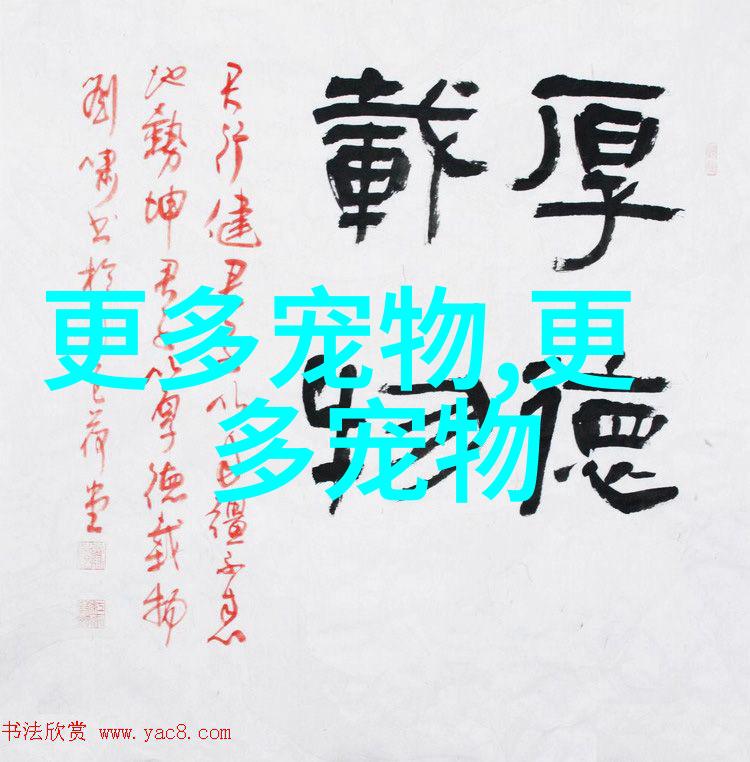 厚德
載物
天行健君子以自彊不息
地勢坤君子以厚德載物
劉嘯书於荷堂
更多宠物,更
多宠物
书法欣赏 www.yac8.com